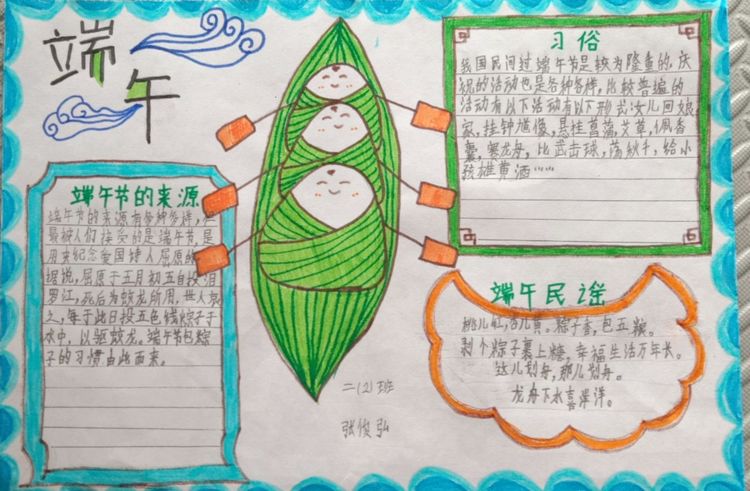 端午
端午节的来源
端午节的来源有多种多样，但
最被人们接受的是端午节是
用来纪念爱国诗人屈原的
据说，屈原于五月初五自投汨
罗江，死后为蛟龙所困，世人哀
之，每于此日投五色线粽子于
水中，以驱蛟龙。端午节包粽
子的习惯由此而来。
习俗
我国民间过端午节是较为隆重的，庆
祝的活动也是各种各样，比较普遍的
活动有以下活动有以下形式：女儿回娘
家，挂钟馗像，悬挂菖蒲，艾草，佩香
囊，赛龙舟，比武击球，荡秋千，给小
孩雄黄酒……
端午民谣
桃儿红，杏儿黄。粽子香，包五粮。
剥个粽子裹上糖，幸福生活万年长。
这儿划舟，那儿划舟。
龙舟下水喜洋洋。
二(2)班
张俊弘